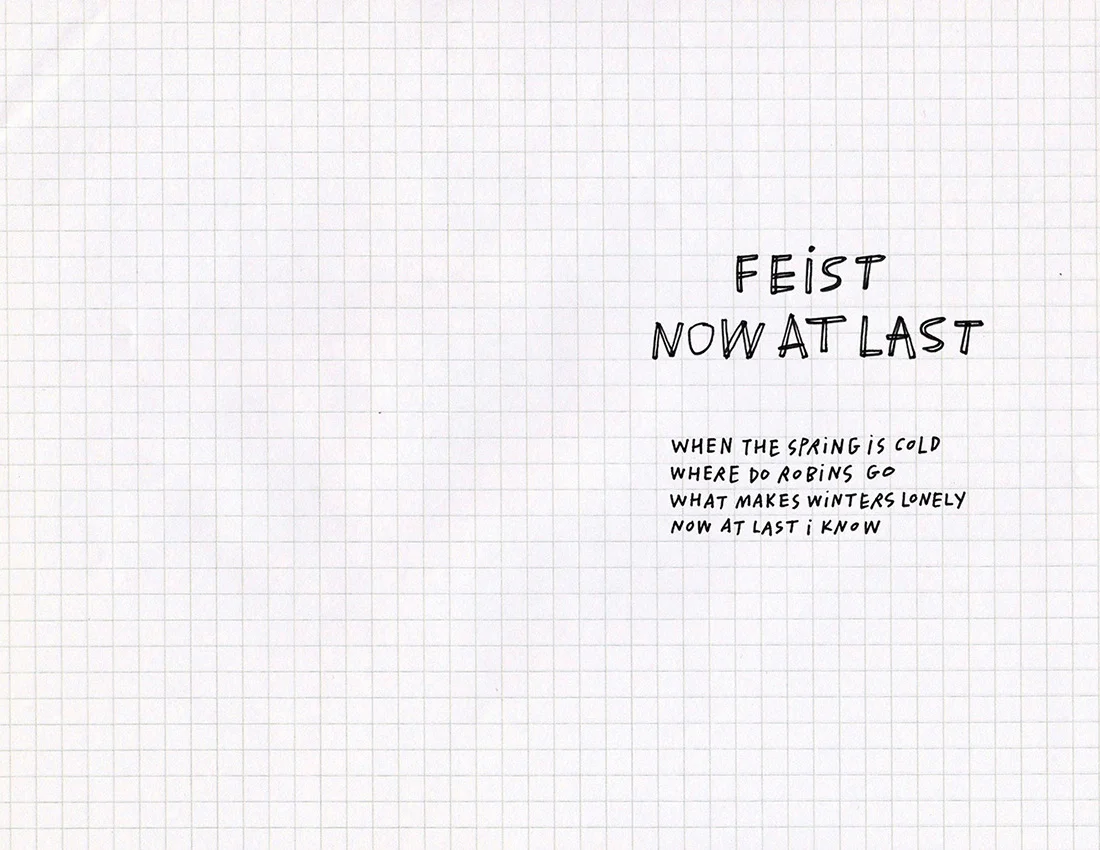 FEiST
NOW AT LAST
WHEN THE SPRiNG iS COLD
WHERE DO ROBiNS GO
WHAT MAKES WiNTERS LONELY
NOW AT LAST i KNOW